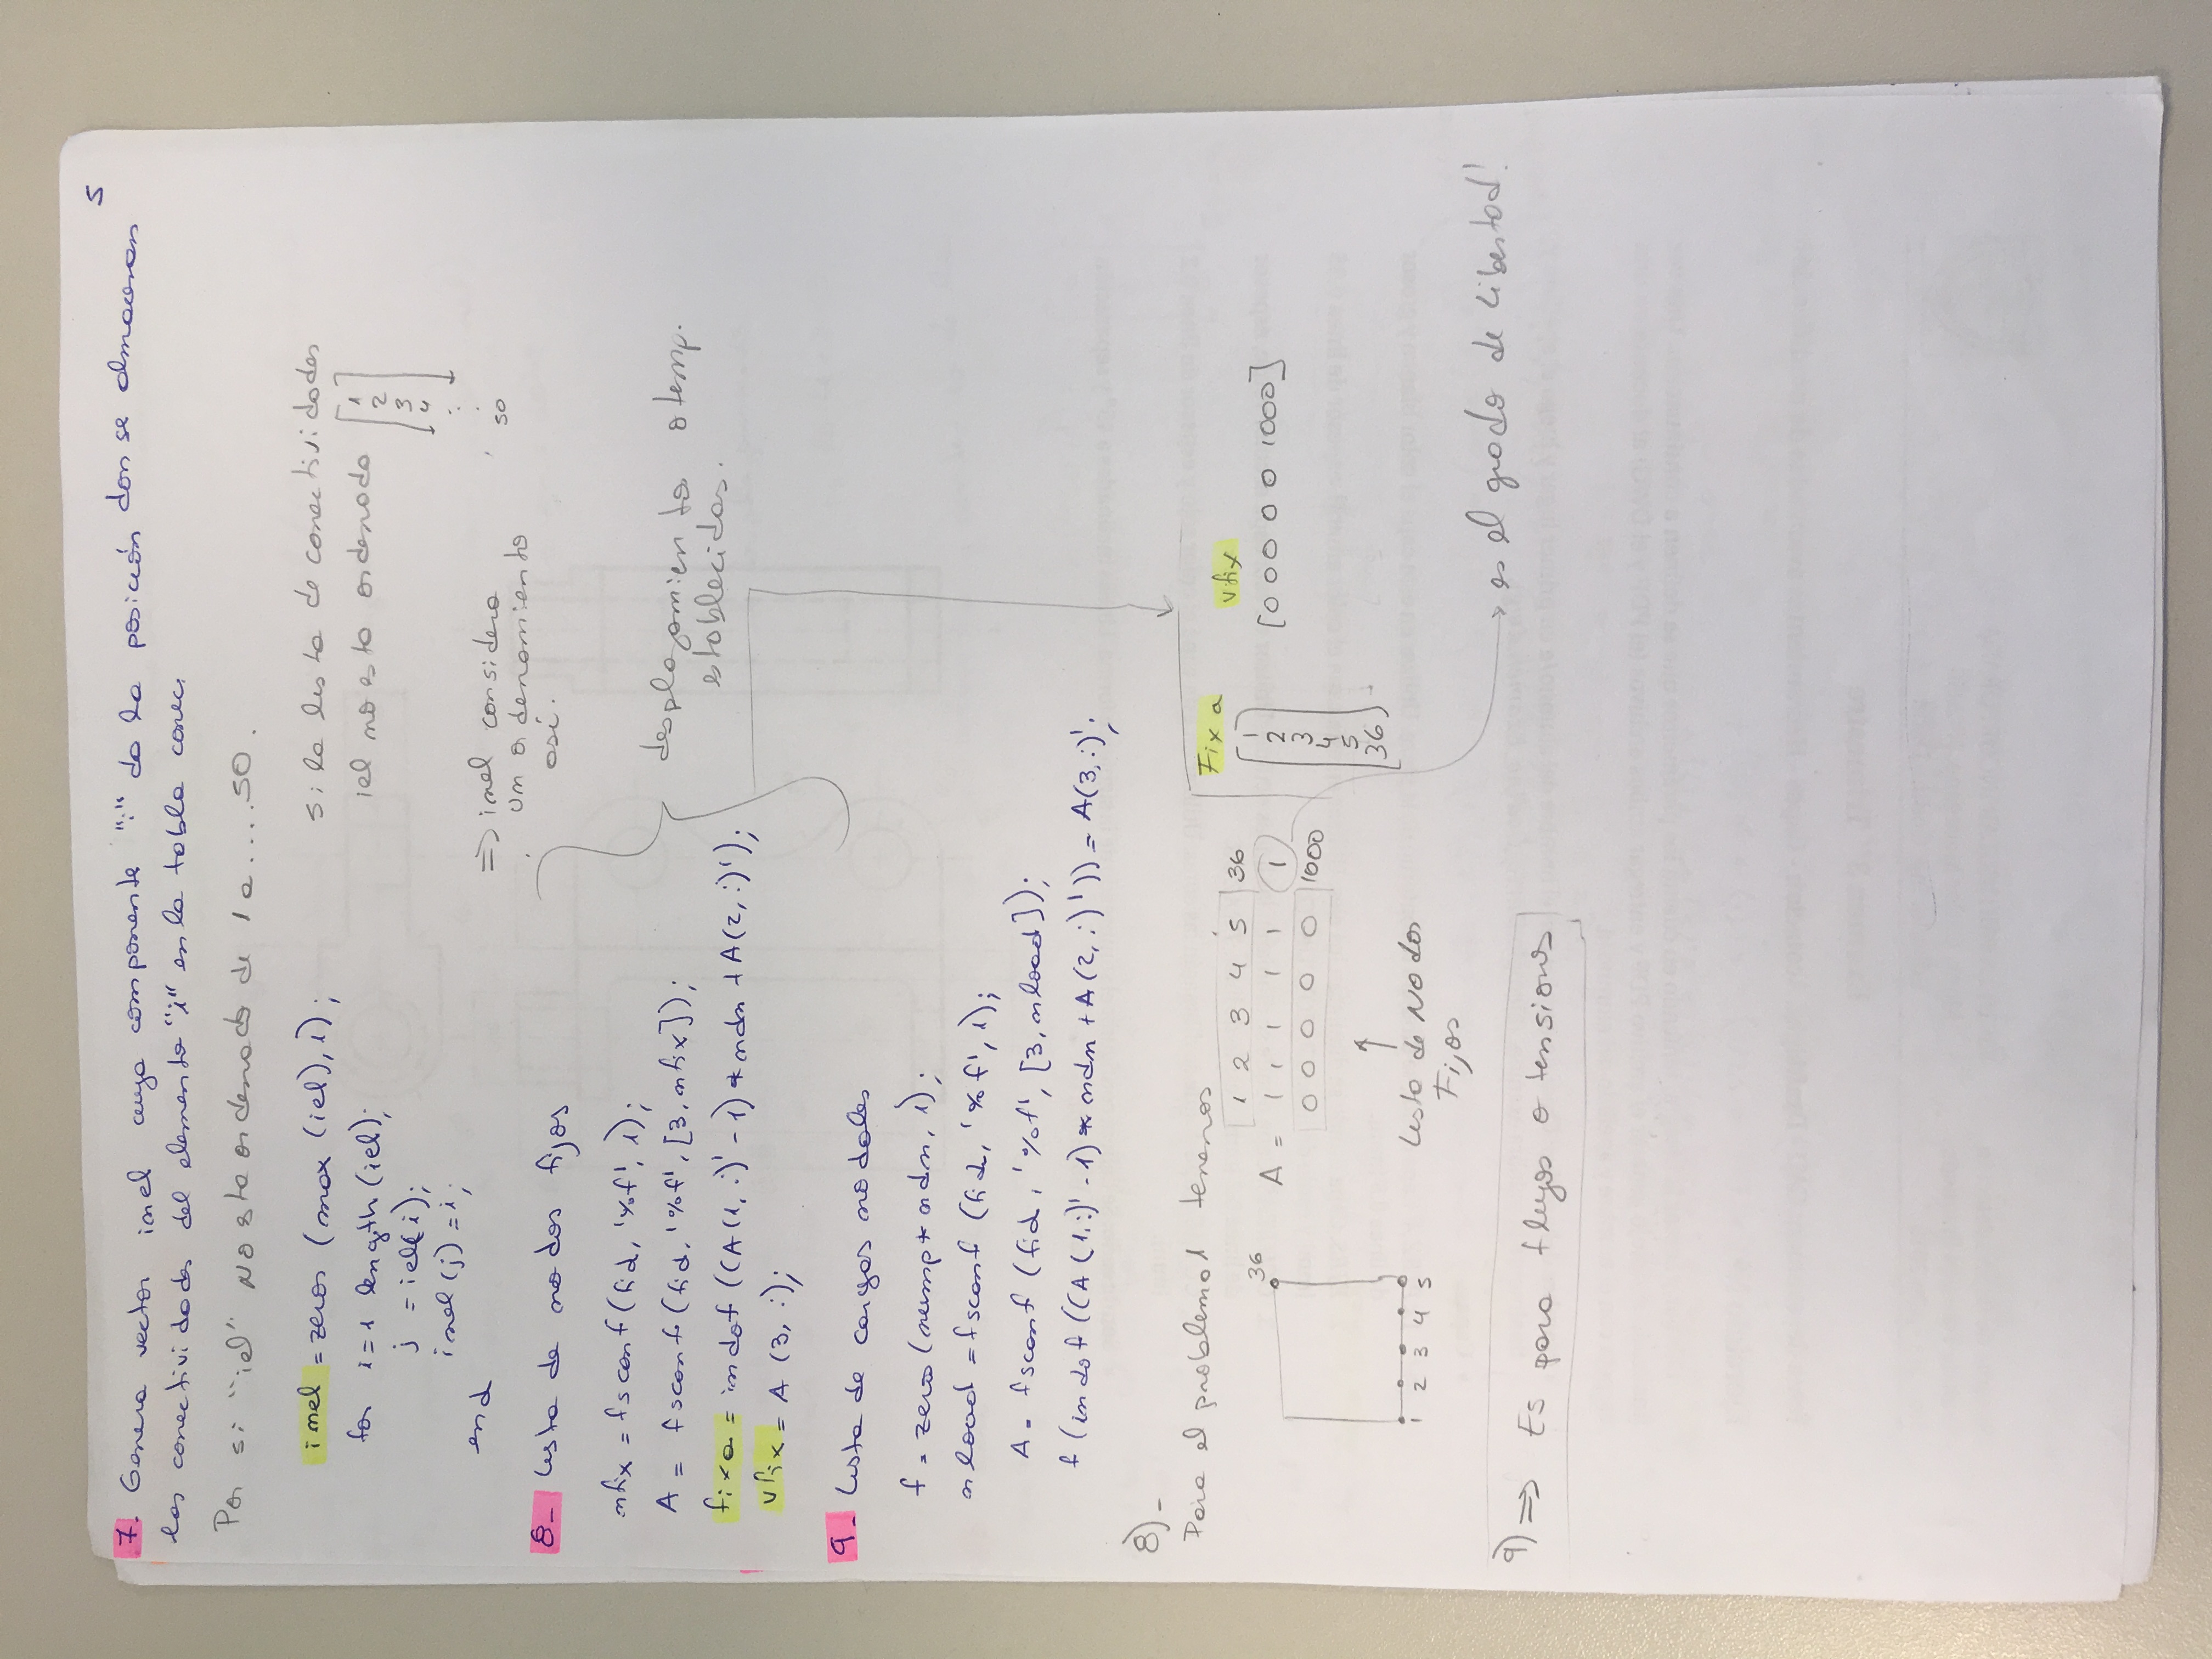 5
7. Genera vector inel cuya componente "i" da la posición don se almacenan
las conectividades del elemento "i" en la tabla conec.
Por si "iel" NO esta ordenado de 1 a ....50.
inel = zeros (max (iel), 1);
for i=1 length(iel);
j = iel(i);
inel (j) = i;
end
si la lista de conectividades
iel no esta ordenado
1
2
3
4
:
.
50
=> inel considera
un ordenamiento
así.
8- Lista de nodos fijos
nfix = fscanf (fid, '%f', 1);
A = fscanf (fid, '%f', [3, nfix]);
fixa = indof ((A(1, :)' - 1) * ndn + A(2, :)');
vfix = A (3, :);
desplazamientos o temp.
establecidos.
9- Lista de cargas nodales
f = zero (nump * ndn, 1);
nload = fscanf (fid, '%f', 1);
A = fscanf (fid, '%f', [3, nload]);
f (indof ((A (1, :)' - 1) * ndn + A (2, :)')) = A(3, :)';
8)-
Para el problema 1 tenemos
36
1 2 3 4 5
A =
1 2 3 4 5 36
1 1 1 1 1 1
0 0 0 0 0 1000
Lista de Nodos
Fijos
Fixa
1
2
3
4
5
36
vfix
[0 0 0 0 0 1000]
es el grado de libertad!
9) => Es para flujos o tensiones